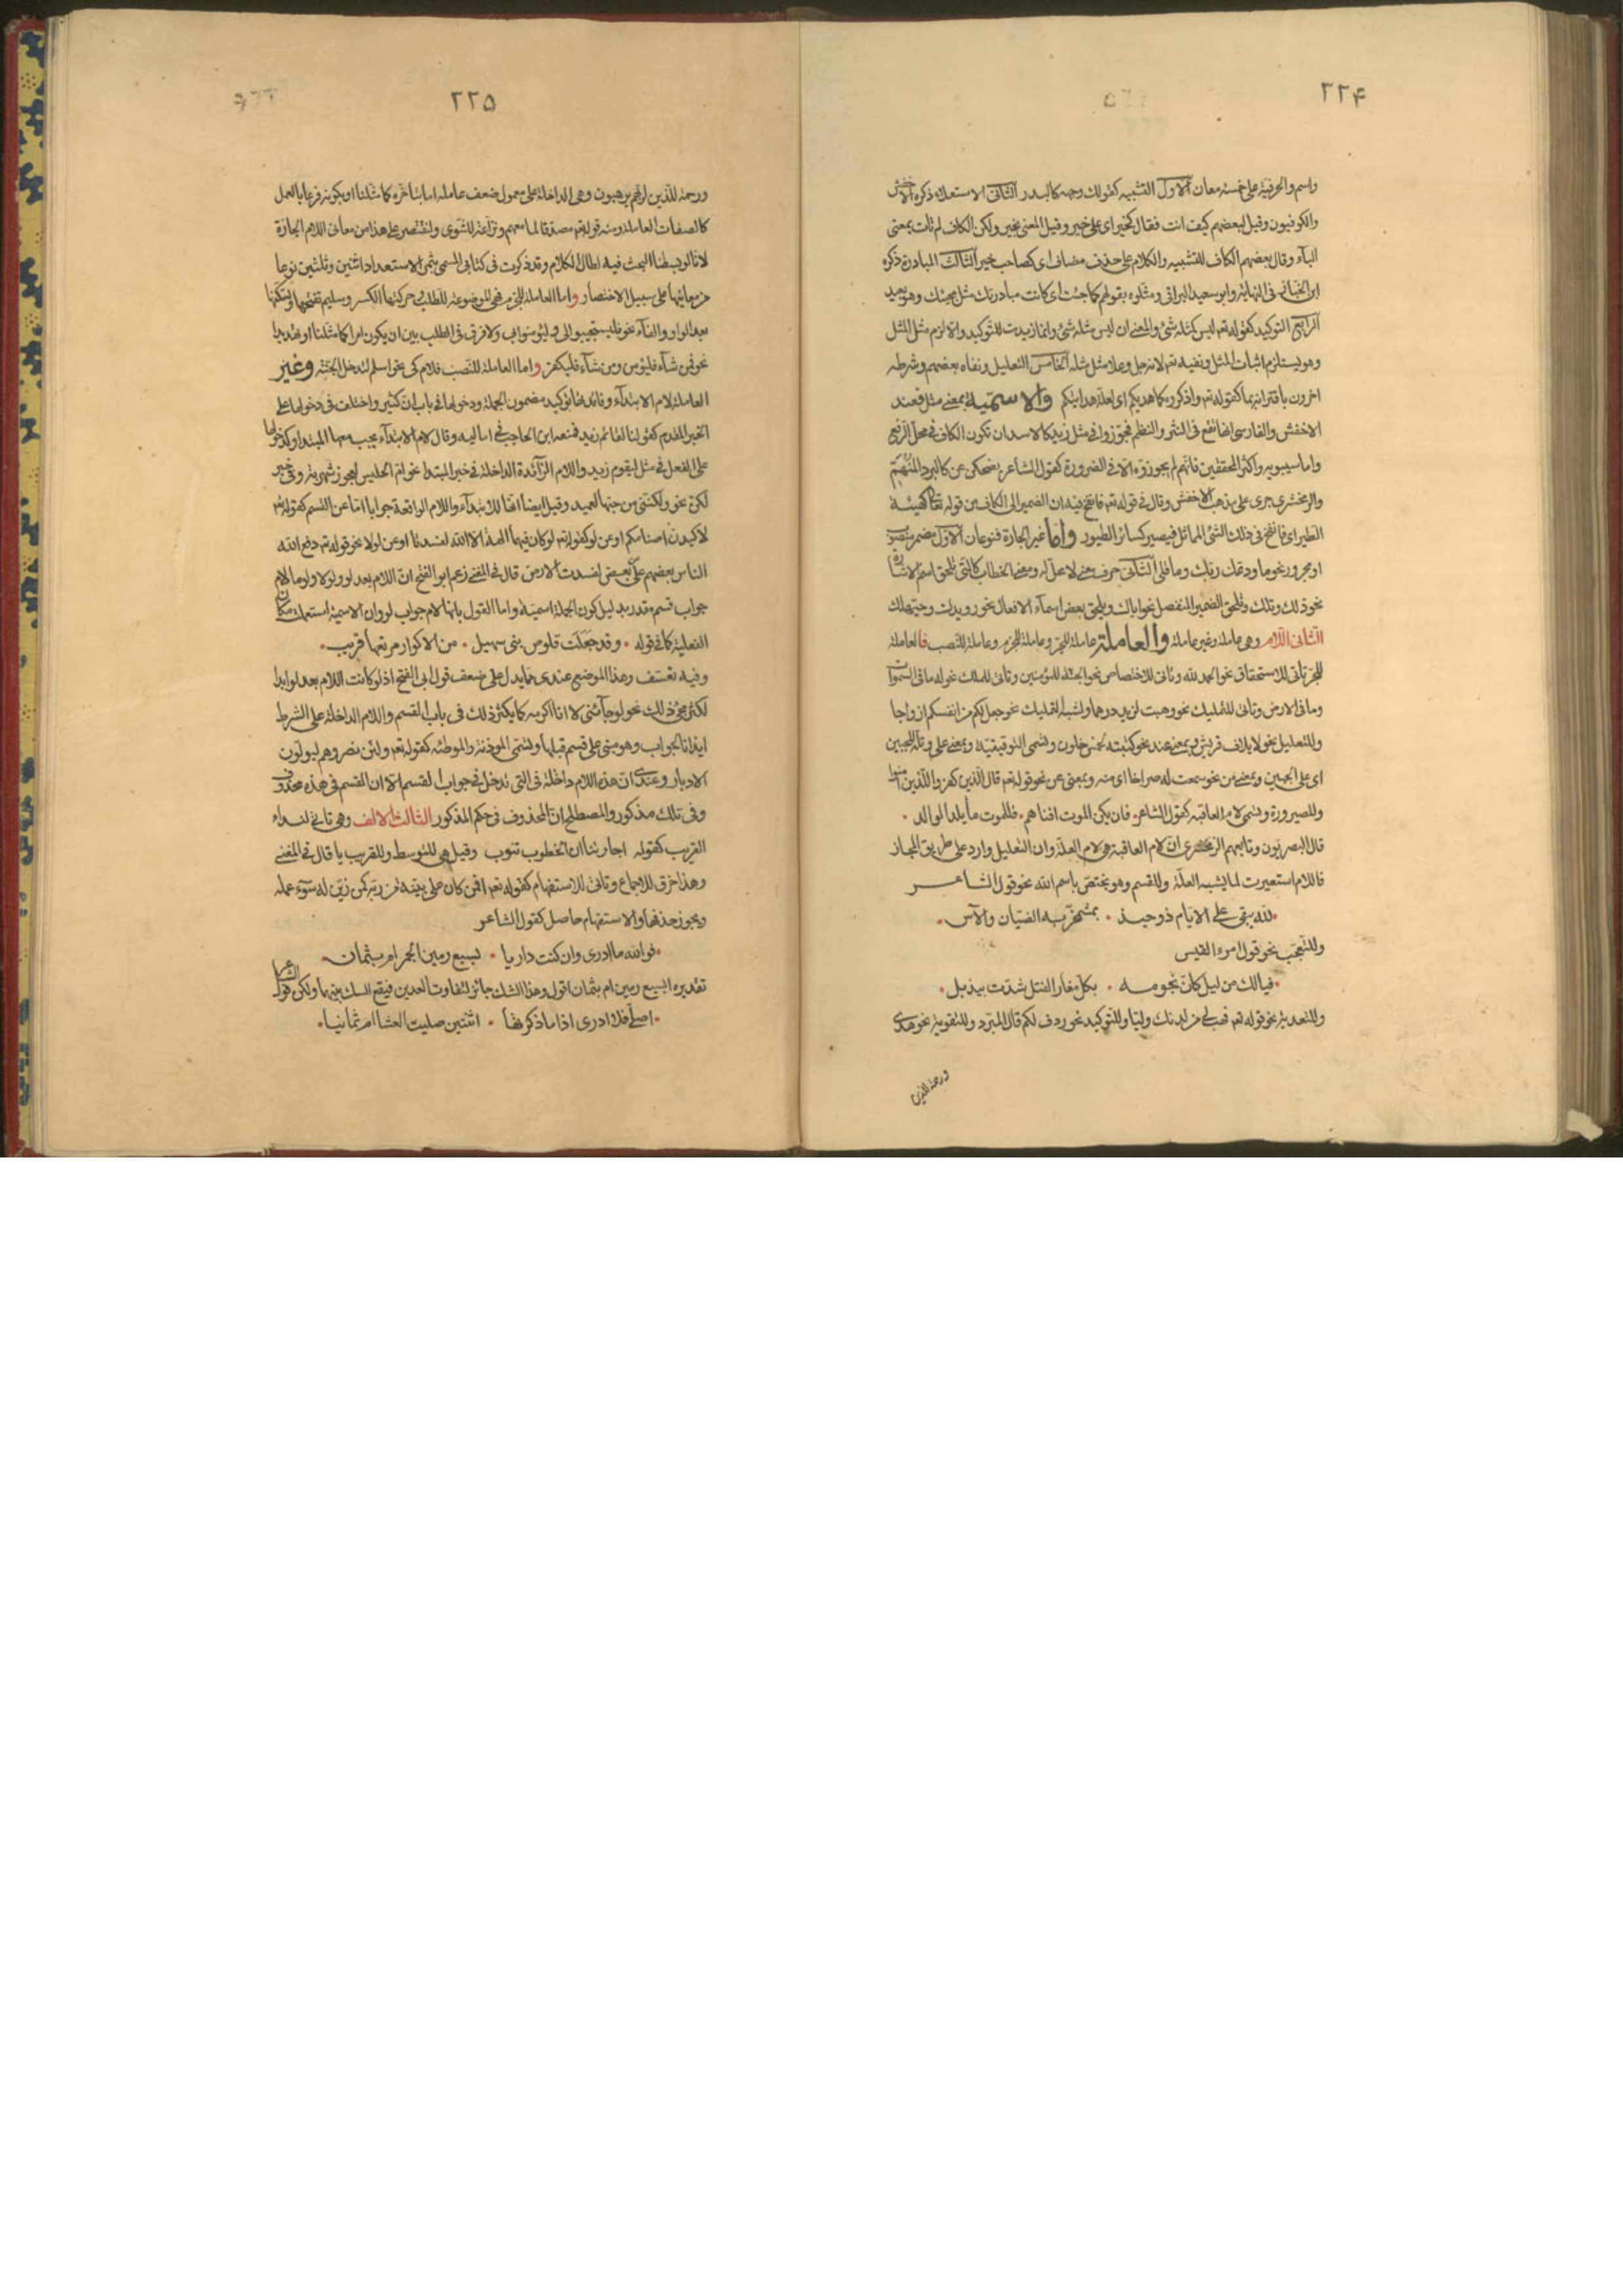 ٢٢۴
واسم والحرفية على خمسة معان الاول التشبيه كقولك وجهه كالبدر الثاني الاستعلاء ذكره الاخفش
والكوفيون وقيل لبعضهم كيف انت فقال كخير اى على خير وقيل المعنى بخير ولكن الكاف لم تأت بمعنى
الباء وقال بعضهم الكاف للتشبيه والكلام على حذف مضاف اى كصاحب خير الثالث المبادرة ذكره
ابن الخباز فى النهاية وابو سعيد السيرافى ومثلوه بقولهم كما جئت اى كانت مبادرتك مثل مجيئك وهو بعيد
الرابع التوكيد كقوله تع ليس كمثله شئ والمعنى ان ليس مثله شئ وانما زيدت للتوكيد والا لزم مثل المثل
وهو يستلزم اثبات المثل ونفيه تع لانه جل وعلا مثل مثله الخامس التعليل ونفاه بعضهم وشرطه
اخرون باقترانه بما كقوله تع واذكروه كما هديكم اى لعلة هدايتكم والاسمية بمعنى مثل فعند
الاخفش والفارسى انها تقع فى النثر والنظم فجوزوا فى مثل زيد كالاسد ان تكون الكاف فى محل الرفع
واما سيبويه واكثر المحققين فانهم لم يجوزوه الا فى الضرورة كقول الشاعر يضحكن عن كالبرد المنهم
والزمخشرى جرى على مذهب الاخفش وقال فى قوله تع فانفخ فيه ان الضمير الى الكاف من قوله تعا كهيئة
الطير اى فانفخ فى ذلك الشئ المماثل فيصير كسائر الطيور واما غير الجارة فنوعان الاول مضمر منصوب
او مجرور نحو ما ودعك ربك وما قلى الثانى حرف معنى لا محل له ومعنى الخطاب كالتى تلحق اسم الاشارة
نحو ذلك وتلك وتلحق الضمير المنفصل نحو اياك وتلحق بعض اسماء الافعال نحو رويدك وحيهلك
الثانى اللام وهى عاملة وغير عاملة والعاملة عاملة للجر وعاملة للجزم وعاملة للنصب فالعاملة
للجر تأتى للاستحقاق نحو الحمد لله وتاتى للاختصاص نحو الجنة للمؤمنين وتاتى للملك نحو له ما فى السموات
وما فى الارض وتاتى للتمليك نحو وهبت لزيد درهما ولشبه التمليك نحو جعل لكم من انفسكم ازواجا
وللتعليل نحو لايلاف قريش وبمعنى عند نحو كتبته لخمس خلون وتسمى التوقيتية وبمعنى على وتله للجبين
اى على الجبين وبمعنى من نحو سمعت له صراخا اى منه وبمعنى عن نحو قوله تع قال الذين كفروا للذين امنوا
وللصيرورة وتسمى لام العاقبة كقول الشاعر٠ فان يكن الموت افناهم٠ فللموت ما يلد الوالد ٠
قال البصريون وتابعهم الزمخشرى ان لام العاقبة هى لام العلة وان التعليل وارد على طريق المجاز
فاللام استعيرت لما يشبه العلة وللقسم وهو يختص باسم الله نحو قول الشاعر
٠لله يبقى على الايام ذو حيد ٠ بمشمخر به الضيان والآس٠
وللتعجب نحو قول امرء القيس
٠فيا لك من ليل كان نجومه ٠ بكل مغار الفتل شدت بيذبل٠
وللتعدية نحو قوله تع فهب لى من لدنك وليا وللتوكيد نحو ردف لكم قال المبرد وللتقوية نحو هدى
ورحمة للذين
٢٢۵
ورحمة للذين لربهم يرهبون وهى الداخلة على معمول ضعف عامله اما بتاخره كما مثلنا او بكونه فرعا بالعمل
كالصفات العاملة ومنه قوله تع مصدقا لما معهم ونزاعة للشوى ولنقتصر على هذا من معانى اللام الجارة
لانا لو بسطنا البحث فيه لطال الكلام وقد ذكرت فى كتابى المسمى بثمر الاستعداد اثنين وثلثين نوعا
من معانيها على سبيل الاختصار واما العاملة للجزم فهى الموضوعة للطلب وحركتها الكسر وسليم تفتحها وتسكنها
بعد الواو والفاء نحو فليستجيبوا لى وليؤمنوا بى ولا فرق فى الطلب بين ان يكون امرا كما مثلنا او تهديدا
نحو فمن شاء فليؤمن ومن شاء فليكفر واما العاملة للنصب فلام كى نحو اسلم لتدخل الجنة وغير
العاملة لام الابتداء وفائدتها توكيد مضمون الجملة ودخولها فى باب ان كثير واختلف فى دخولها على
الخبر المقدم كقولنا لقائم زيد فمنعه ابن الحاجب فى اماليه وقال لام الابتداء يجب معها المبتدا وكذا دخولها
على الفعل فى مثل ليقوم زيد واللام الزائدة الداخلة فى خبر المبتدا نحو ام الحليس لعجوز شهربة وفى خبر
لكن نحو ولكننى من حبها لعميد وقيل ايضا انها للابتداء واللام الواقعة جوابا اما عن القسم كقوله تع
لاكيدن اصنامكم او عن لو كقوله تع لو كان فيهما الهة الا الله لفسدتا او عن لولا نحو قوله تع دفع الله
الناس بعضهم على بعض لفسدت الارض قال فى المغنى زعم ابو الفتح ان اللام بعد لو ولولا ولوما لام
جواب قسم مقدر بدليل كون الجملة اسمية واما القول بانها لام جواب لو وان الاسمية استعملت مكان
الفعلية كما فى قوله ٠ وقد جعلت قلوص بنى سهيل ٠ من الاكوار مرتعها قريب٠
وفيه تعسف وهذا الموضع عندى مما يدل على ضعف قول ابى الفتح اذ لو كانت اللام بعد لو ابدا
لكثر مجئ ذلك نحو لو جائنى لانا اكرمه كما يكثر ذلك فى باب القسم واللام الداخلة على الشرط
ايذانا بجواب وهو مبنى على قسم قبلها وتسمى المؤذنة والموطئة كقوله تع ولئن نصروهم ليولون
الادبار وعندى ان هذه اللام داخلة فى التى تدخل فى جواب القسم الا ان القسم فى هذه محذوف
وفى تلك مذكور والمصطلح ان المحذوف فى حكم المذكور الثالث الالف وهى تاتى لنداء
القريب كقوله اجارتنا ان الخطوب تنوب وقيل هى للمتوسط وللقريب يا قال فى المغنى
وهذا خرق للاجماع وتاتى للاستفهام كقوله تع افمن كان على بينة من ربه كمن زين له سوء عمله
ويجوز حذفها والاستفهام حاصل كقول الشاعر
٠فوالله ما ادرى وان كنت داريا ٠ بسبع رمين الجمر ام بثمان
تقديره ابسبع رمين ام بثمان اقول وهذا الشك جائز لتفاوت العددين فيقع الشك بينهما ولكن قول الشاعر
٠اصلى فلا ادرى اذا ما ذكرتها ٠ اثنتين صليت العشا ام ثمانيا٠